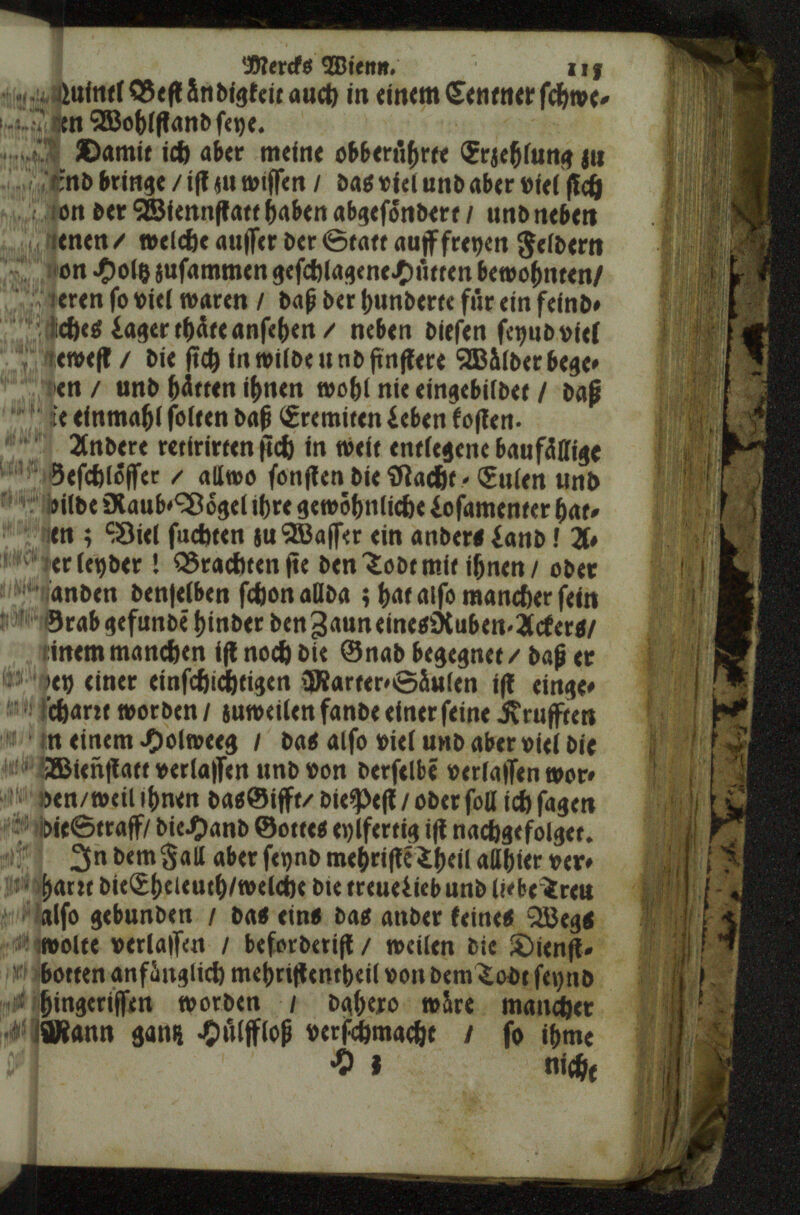 Mercks Wienn. 115
Quintl Beständigkeit auch in einem Centner schwe-
ren Wohlstand seye.
Damit ich aber meine obberührte Erzehlung zu
End bringe / ist zu wissen / das viel und aber viel sich
von der Wiennstatt haben abgesöndert / und neben
jenen / welche ausser der Statt auff freyen Feldern
von Holtz zusammen geschlagene Hütten bewohnten /
deren so viel waren / daß der hunderte für ein feind-
liches Lager thäte ansehen / neben diesen seynd viel
gewest / die sich in wilde und finstere Wälder bege-
ben / und hätten ihnen wohl nie eingebildet / daß
sie einmahl solten daß Eremiten Leben kosten.
Andere retirirten sich in weit entlegene baufällige
Geschlösser / allwo sonsten die Nacht-Eulen und
wilde Raub-Vögel ihre gewöhnliche Losamenter hat-
ten ; Viel suchten zu Wasser ein anders Land ! A-
ber leyder ! Brachten sie den Todt mit ihnen / oder
fanden denselben schon allda ; hat also mancher sein
Grab gefundē hinder den Zaun eines Ruben-Ackers /
einem manchen ist noch die Gnad begegnet / daß er
bey einer einschichtigen Marter-Säulen ist einge-
scharrt worden / zuweilen fande einer seine Krufften
in einem Holweeg / das also viel und aber viel die
Wieñstatt verlassen und von derselbē verlassen wor-
den / weil ihnen das Gifft / die Pest / oder soll ich sagen
die Straff / die Hand Gottes eylfertig ist nachgefolget.
In dem Fall aber seynd mehristē Theil allhier ver-
harrt die Eheleuth / welche die treue Lieb und liebe Treu
also gebunden / das eins das ander keines Wegs
wolte verlassen / beforderist / weilen die Dienst-
botten anfänglich mehristentheil von dem Todt seynd
hingerissen worden / dahero wäre mancher
Mann gantz Hülffloß verschmacht / so ihme
H 2 nicht